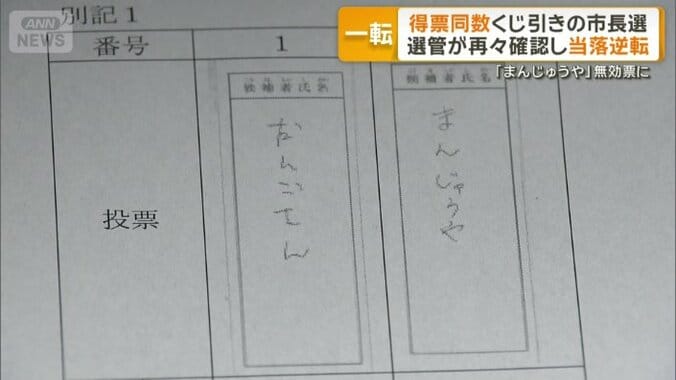 ANN
NEWS
一転
得票同数くじ引きの市長選
選管が再々確認し当落逆転
「まんじゅうや」無効票に
別記1
番号
1
投票
候補者氏名
だんごさん
候補者氏名
まんじゅうや